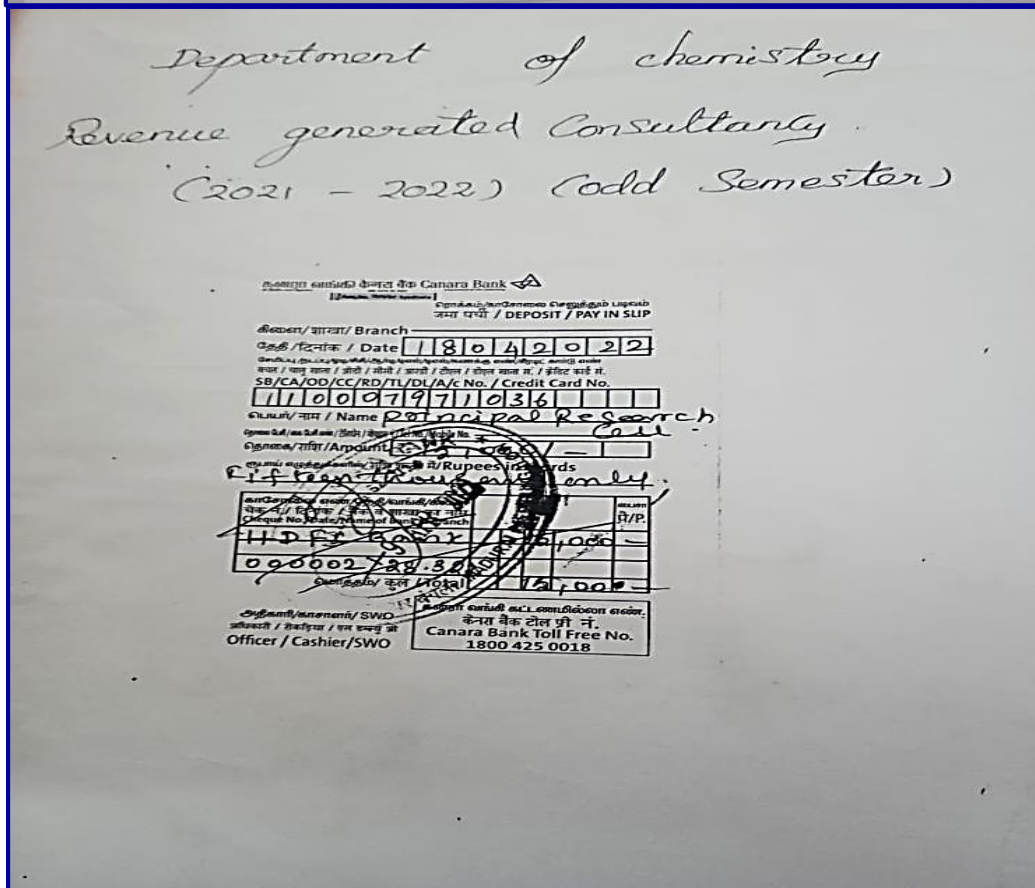 Department of chemistry
Revenue generated Consultancy.
(2021 - 2022) (odd Semester)
கனரா வங்கி केनरा बैंक Canara Bank
जमा पर्ची / DEPOSIT / PAY IN SLIP
கிளை/ शाखा/ Branch
தேதி /दिनांक / Date 18042022
SB/CA/OD/CC/RD/TL/DL/A/c No. / Credit Card No.
110097971036
பெயர்/ नाम / Name Principal Research
Cell.
தொகை/राशि/Amount
/Rupees in words
Fifteen thousand only.
Cheque No./Date/Name of Bank/Branch प्रै/P.
HDFC Bank 15,000 -
000002/28.3.22
மொத்தம்/ कुल /Total 15,000 -
அதிகாரி/காசாளர்/ SWO
Officer / Cashier/SWO
கனரா வங்கி கட்டணமில்லா எண்.
केनरा बैंक टोल फ्री नं.
Canara Bank Toll Free No.
1800 425 0018